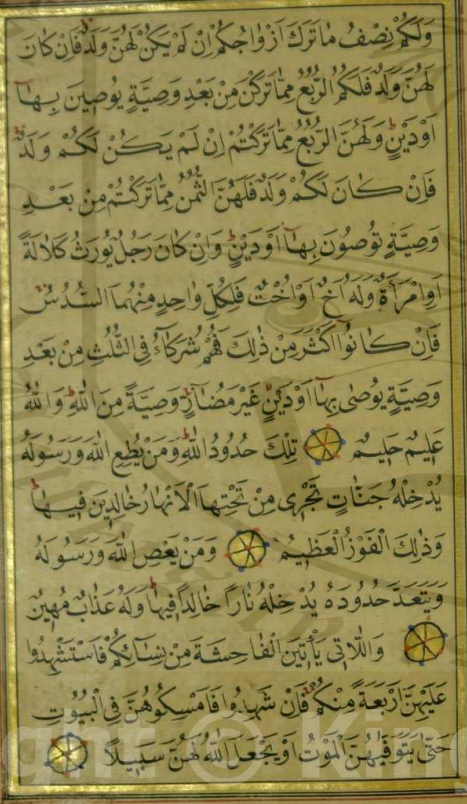 وَلَكُمْ نِصْفُ مَا تَرَكَ اَزْوَاجُكُمْ اِنْ لَمْ يَكُنْ لَهُنَّ وَلَدٌ فَاِنْ كَانَ
لَهُنَّ وَلَدٌ فَلَكُمُ الرُّبُعُ مِمَّا تَرَكْنَ مِنْ بَعْدِ وَصِيَّةٍ يُوصِينَ بِهَا
اَوْ دَيْنٍ وَلَهُنَّ الرُّبُعُ مِمَّا تَرَكْتُمْ اِنْ لَمْ يَكُنْ لَكُمْ وَلَدٌ
فَاِنْ كَانَ لَكُمْ وَلَدٌ فَلَهُنَّ الثُّمُنُ مِمَّا تَرَكْتُمْ مِنْ بَعْدِ
وَصِيَّةٍ تُوصُونَ بِهَا اَوْ دَيْنٍ وَاِنْ كَانَ رَجُلٌ يُورَثُ كَلَالَةً
اَوِ امْرَاَةٌ وَلَهُ اَخٌ اَوْ اُخْتٌ فَلِكُلِّ وَاحِدٍ مِنْهُمَا السُّدُسُ
فَاِنْ كَانُوا اَكْثَرَ مِنْ ذٰلِكَ فَهُمْ شُرَكَاءُ فِى الثُّلُثِ مِنْ بَعْدِ
وَصِيَّةٍ يُوصٰى بِهَا اَوْ دَيْنٍ غَيْرَ مُضَارٍّ وَصِيَّةً مِنَ اللّٰهِ وَاللّٰهُ
عَلِيمٌ حَلِيمٌ تِلْكَ حُدُودُ اللّٰهِ وَمَنْ يُطِعِ اللّٰهَ وَرَسُولَهُ
يُدْخِلْهُ جَنَّاتٍ تَجْرِى مِنْ تَحْتِهَا الْاَنْهَارُ خَالِدِينَ فِيهَا
وَذٰلِكَ الْفَوْزُ الْعَظِيمُ وَمَنْ يَعْصِ اللّٰهَ وَرَسُولَهُ
وَيَتَعَدَّ حُدُودَهُ يُدْخِلْهُ نَارًا خَالِدًا فِيهَا وَلَهُ عَذَابٌ مُهِينٌ
وَاللَّاتِى يَاْتِينَ الْفَاحِشَةَ مِنْ نِسَائِكُمْ فَاسْتَشْهِدُوا
عَلَيْهِنَّ اَرْبَعَةً مِنْكُمْ فَاِنْ شَهِدُوا فَاَمْسِكُوهُنَّ فِى الْبُيُوتِ
حَتّٰى يَتَوَفّٰيهُنَّ الْمَوْتُ اَوْ يَجْعَلَ اللّٰهُ لَهُنَّ سَبِيلًا